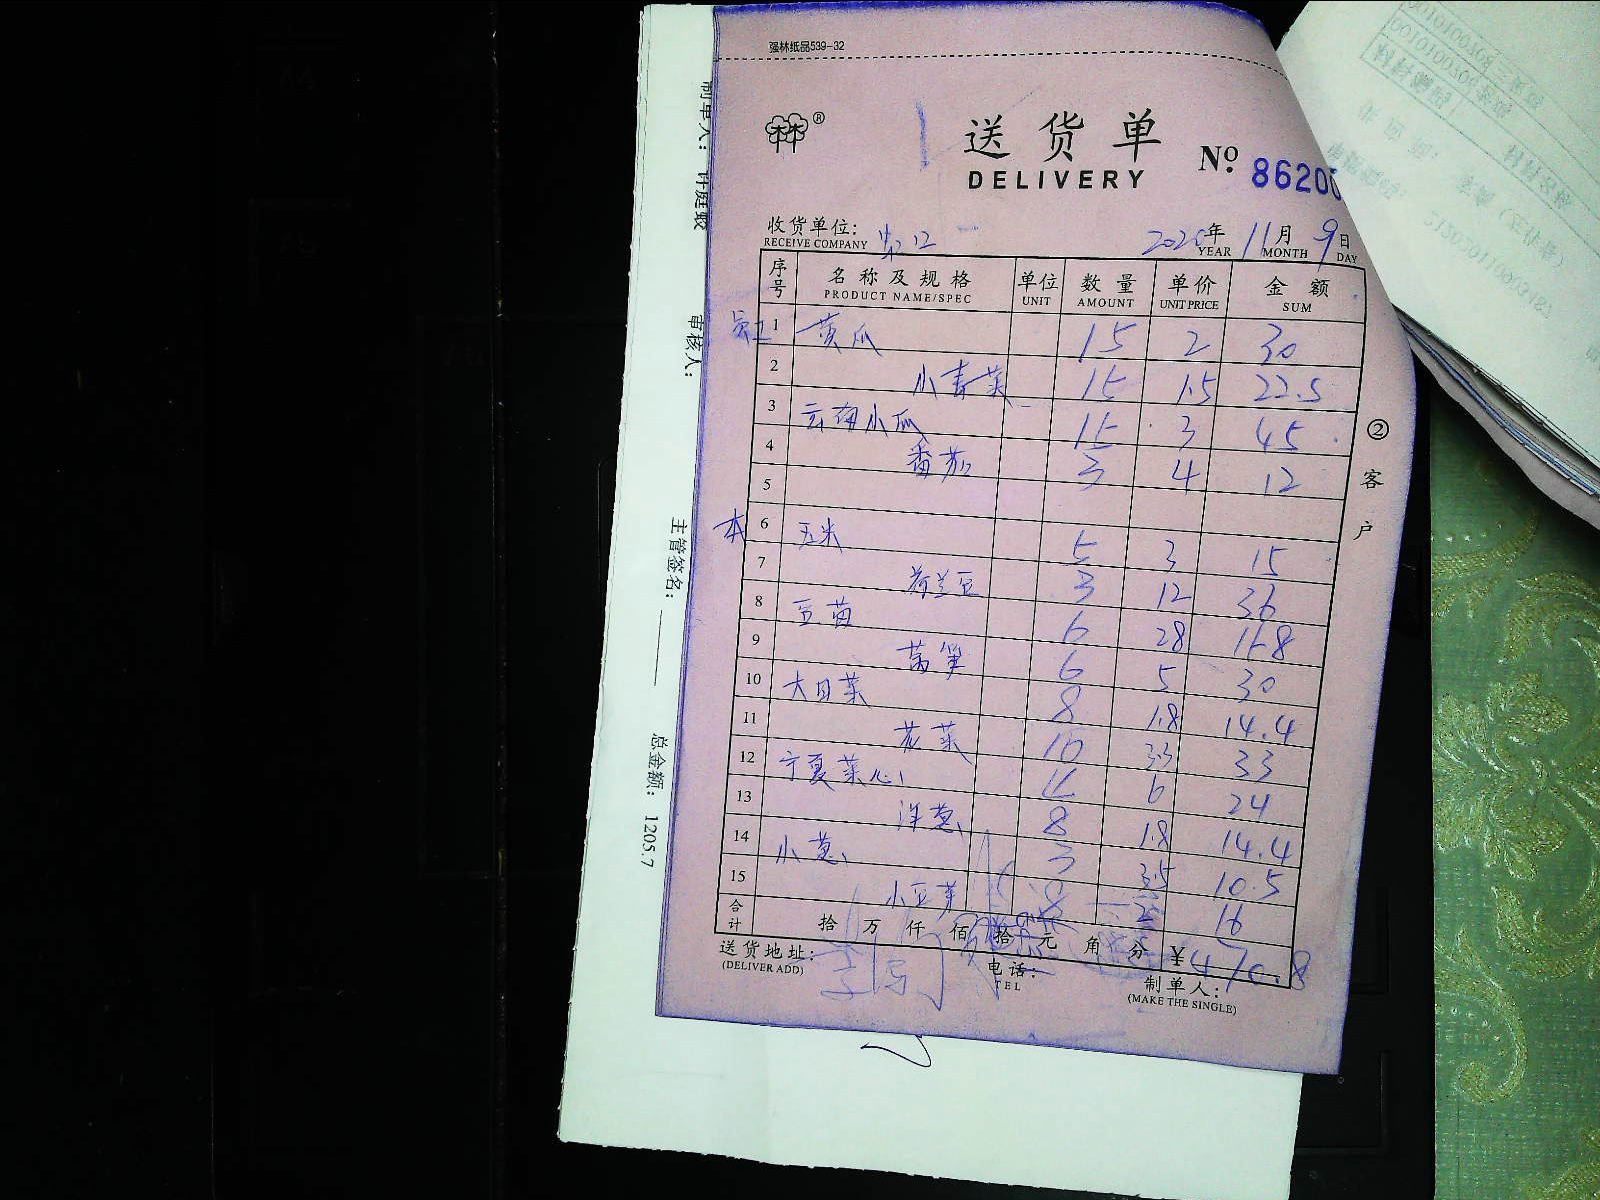 强林纸品539-32
林®
送货单
DELIVERY
No. 8620
收货单位:
RECEIVE COMPANY
2020年 11月 9日
YEAR MONTH DAY
序号 名称及规格 单位 数量 单价 金额
PRODUCT NAME/SPEC UNIT AMOUNT UNIT PRICE SUM
1 黄瓜 15 2 30
2 小青菜 15 1.5 22.5
3 云南小瓜 15 3 45
4 番茄 3 4 12
5
本 6 玉米 5 3 15
7 荷兰豆 3 12 36
8 豆苗 6 28 168
9 莴笋 6 5 30
10 大白菜 8 1.8 14.4
11 花菜 10 3.3 33
12 宁夏菜心 4 6 24
13 洋葱 8 1.8 14.4
14 小葱 3 3.5 10.5
15 小豆芽 8 2 16
合计 拾 万 仟 佰 拾 元 角 分 ¥470.8
送货地址:
(DELIVER ADD)
电话:
TEL
制单人:
(MAKE THE SINGLE)
②客户
制单人: 计庭
审核人:
主管签名:
总金额: 1205.7